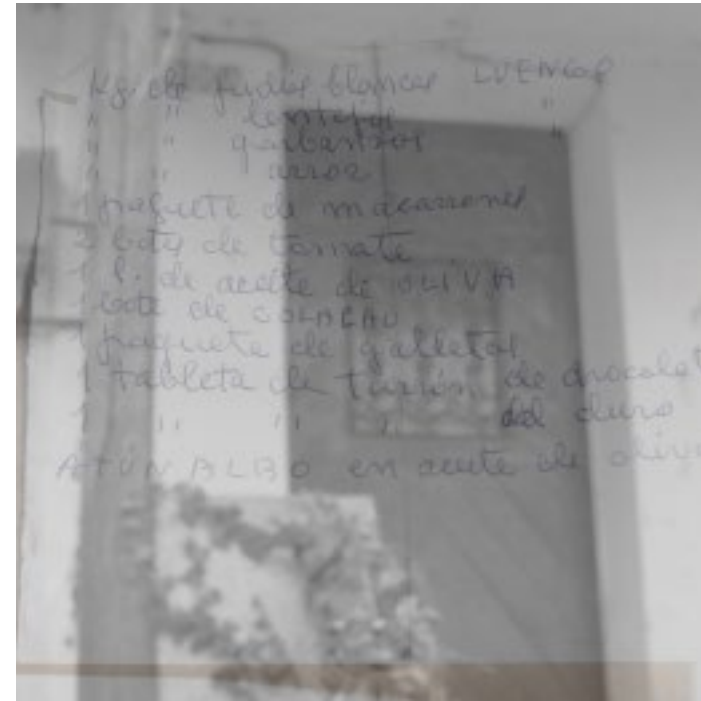 1 Kg. de judias blancas LUENGO
" " lentejas "
" " garbanzos "
" " arroz
1 paquete de macarrones
2 bots de tomate
1 l. de aceite de OLIVA
1 bote de COLACAO
1 paquete de galletas
1 tableta de turrón de chocolat
1 " " " del duro
ATUN ALBO en aceite de oliva